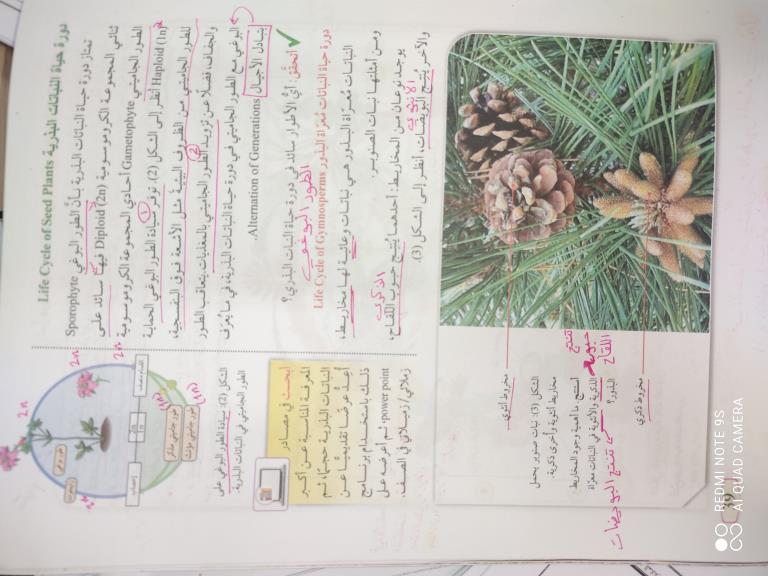 دورة حياة النباتات البذرية Life Cycle of Seed Plants
تمتاز دورة حياة النباتات البذرية بأنَّ الطور البوغي Sporophyte
ثنائي المجموعة الكروموسومية Diploid (2n) فيها سائد على
الطور الجاميتي Gametophyte أحادي المجموعة الكروموسومية
Haploid (1n) أنظر إلى الشكل (2). توفر سيادة الطور البوغي الحماية
للطور الجاميتي من الظروف البيئية مثل الأشعة فوق البنفسجية،
والجفاف، فضلًا عن تزويد الطور الجاميتي بالمغذيات. يتعاقب الطور
البوغي مع الطور الجاميتي في دورة حياة النباتات البذرية، في ما يُعرَف
بتبادل الأجيال Alternation of Generations.
✓ أتحقَّق: أيُّ الأطوار سائد في دورة حياة النبات البذري؟
الطور البوغي
دورة حياة النباتات مُعرّاة البذور Life Cycle of Gymnosperms
النباتات مُعرّاة البذور هي نباتات وعائية لها مخاريط،
ومن أمثلتها نبات الصنوبر.
يوجد نوعان من المخاريط: أحدهما يُنتِج حبوب اللقاح،
الذكري
والآخر يُنتِج البويضات، أنظر إلى الشكل (3).
الأنثوي
2n
2n
2n
2n
(1n)
(1n)
إخصاب
انقسام منصف
طور بوغي
طور جاميتي مذكر
طور جاميتي مؤنث
الشكل (2): سيادة الطور البوغي على
الطور الجاميتي في النباتات البذرية.
أبحث في مصادر
المعرفة المناسبة عن أكبر
النباتات البذرية حجمًا، ثم
أُعِدُّ عرضًا تقديميًّا عن
ذلك باستخدام برنامج
power point، ثم أعرضه على
زملائي/ زميلاتي في الصف.
مخروط أنثوي.
مخروط ذكري
الشكل (3): نبات صنوبر يحمل
مخاريط أنثوية وأخرى ذكرية.
أستنتج: ما أهمية وجود المخاريط
الذكرية والأنثوية في النباتات معرّاة
البذور؟
تنتج
حبوب
اللقاح
تنتج البويضات
39
REDMI NOTE 9S
AI QUAD CAMERA